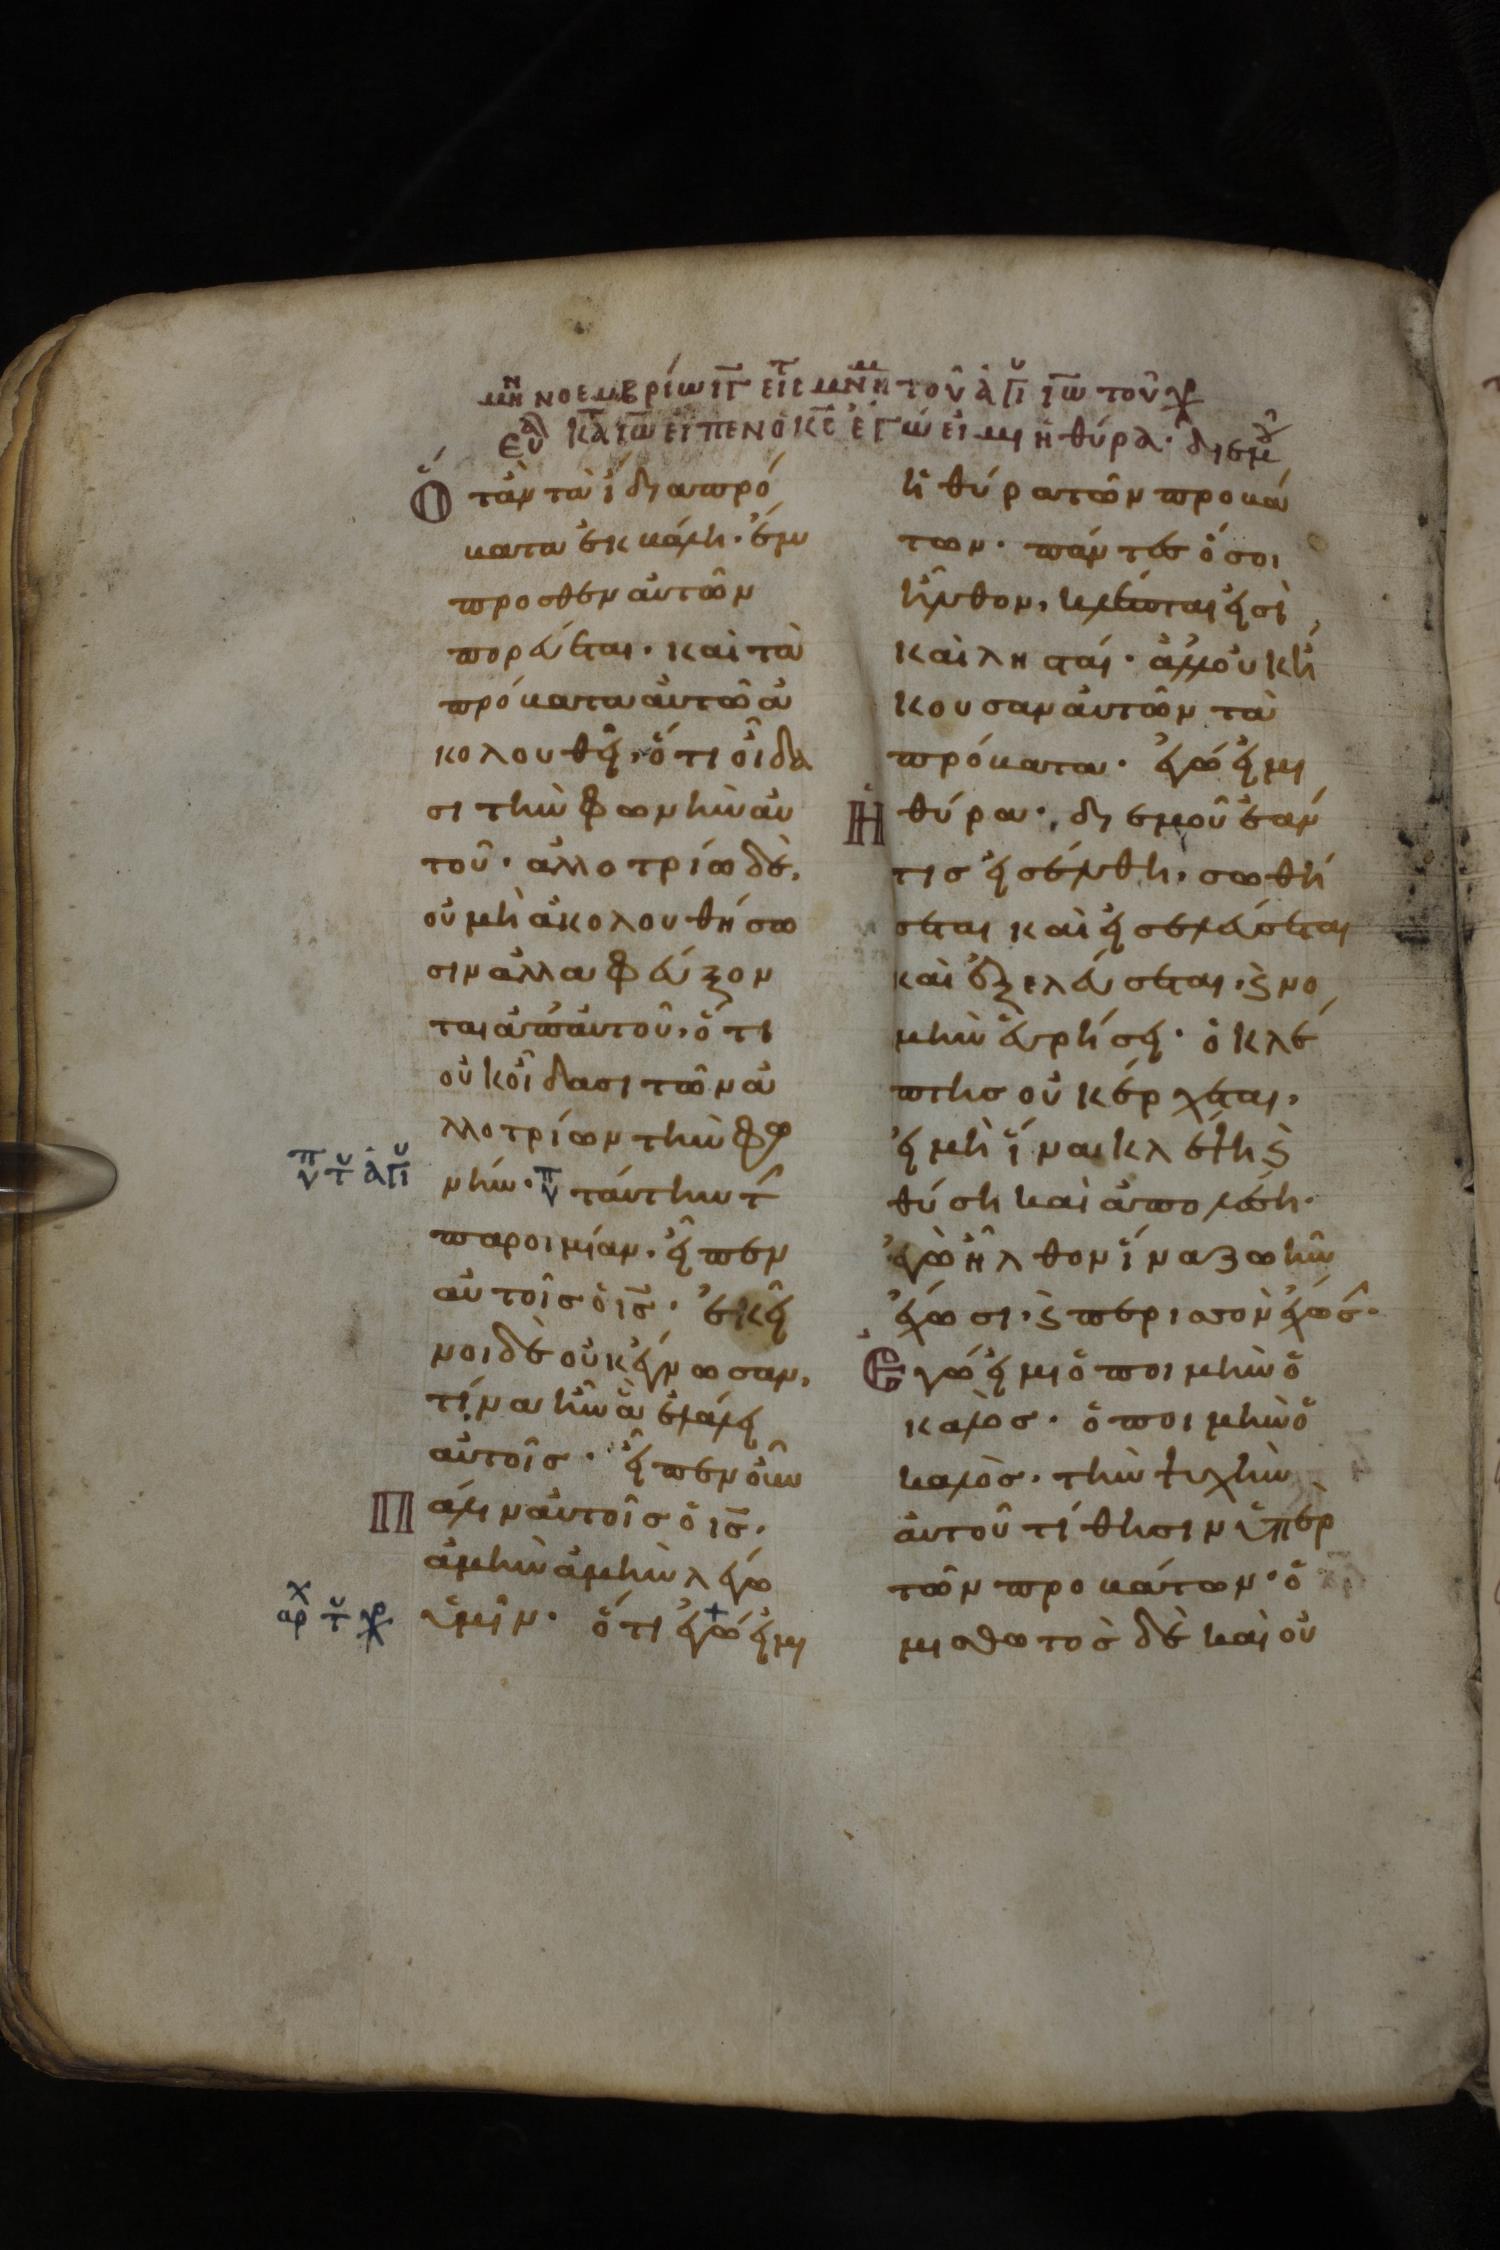 μην νοεμβρίω ιγ εις μνημ τοῦ ἁγιου ιω τοῦ χρ
ευα κατ ιω ειπεν ὁ κς ἐγώ εἰμι ἡ θύρα· δι εμοῦ
Ὅταν τὰ ἴδια πρό
βατα ἐκβάλη· ἔμ
προσθεν αὐτῶν
πορεύεται· καὶ τὰ
πρόβατα αὐτῶ ἀ
κολουθεῖ, ὅτι οἶδα
σι τὴν φωνὴν αὐ
τοῦ· ἀλλοτρίω δὲ,
οὐ μὴ ἀκολουθήσω
σιν ἀλλα φεύξον
ται ἀπ αὐτοῦ, ὅτι
οὐκ οἴδασι τῶν ἀ
λλοτρίων τὴν φω
πν τυ ἁγιυ
νήν· πν ταύτην τ
παροιμίαν, εἶπεν
αὐτοῖς ὁ ις· ἐκεῖ
νοι δὲ οὐκ ἔγνωσαν,
τίνα ἦν ἃ ἐλάλει
αὐτοῖς· εἶπεν οὖν
Πάλιν αὐτοῖς ὁ ις·
ἀμὴν ἀμὴν λέγω
αρχ τυ χρ
ὑμῖν· ὅτι ἐγώ + εἰμι
ἡ θύρα τῶν προβά
των· πάντες ὅσοι
ἦλθον, κλέπται εἰσὶ
καὶ λησταί· ἀλλ οὐκ ἤ
κουσαν αὐτῶν τὰ
πρόβατα· ἐγώ εἰμι
Ἡ θύρα·, δι εμοῦ ἐάν
τις εἰσέλθη, σωθή
σεται καὶ εἰσελεύσεται
καὶ ἐξελεύσεται, ϛ νο
μὴν εὑρήσει· ὁ κλέ
πτης οὐκ έρχεται,
εἰ μὴ ἵνα κλέψη ϛ
θύση καὶ ἀπολέση·
ἐγὼ ἦλθον ἵνα ζωὴν
ἔχωσι, ϛ περισσὸν ἔχωσ·
Ἐγώ εἰμι ὁ ποιμὴν ὁ
καλος· ὁ ποιμὴν ὁ
καλὸς· τὴν ψυχὴν
ἀυτοῦ τίθησιν ὑπὲρ
τῶν προβάτων· ὁ
μισθωτος δὲ καὶ οὐ